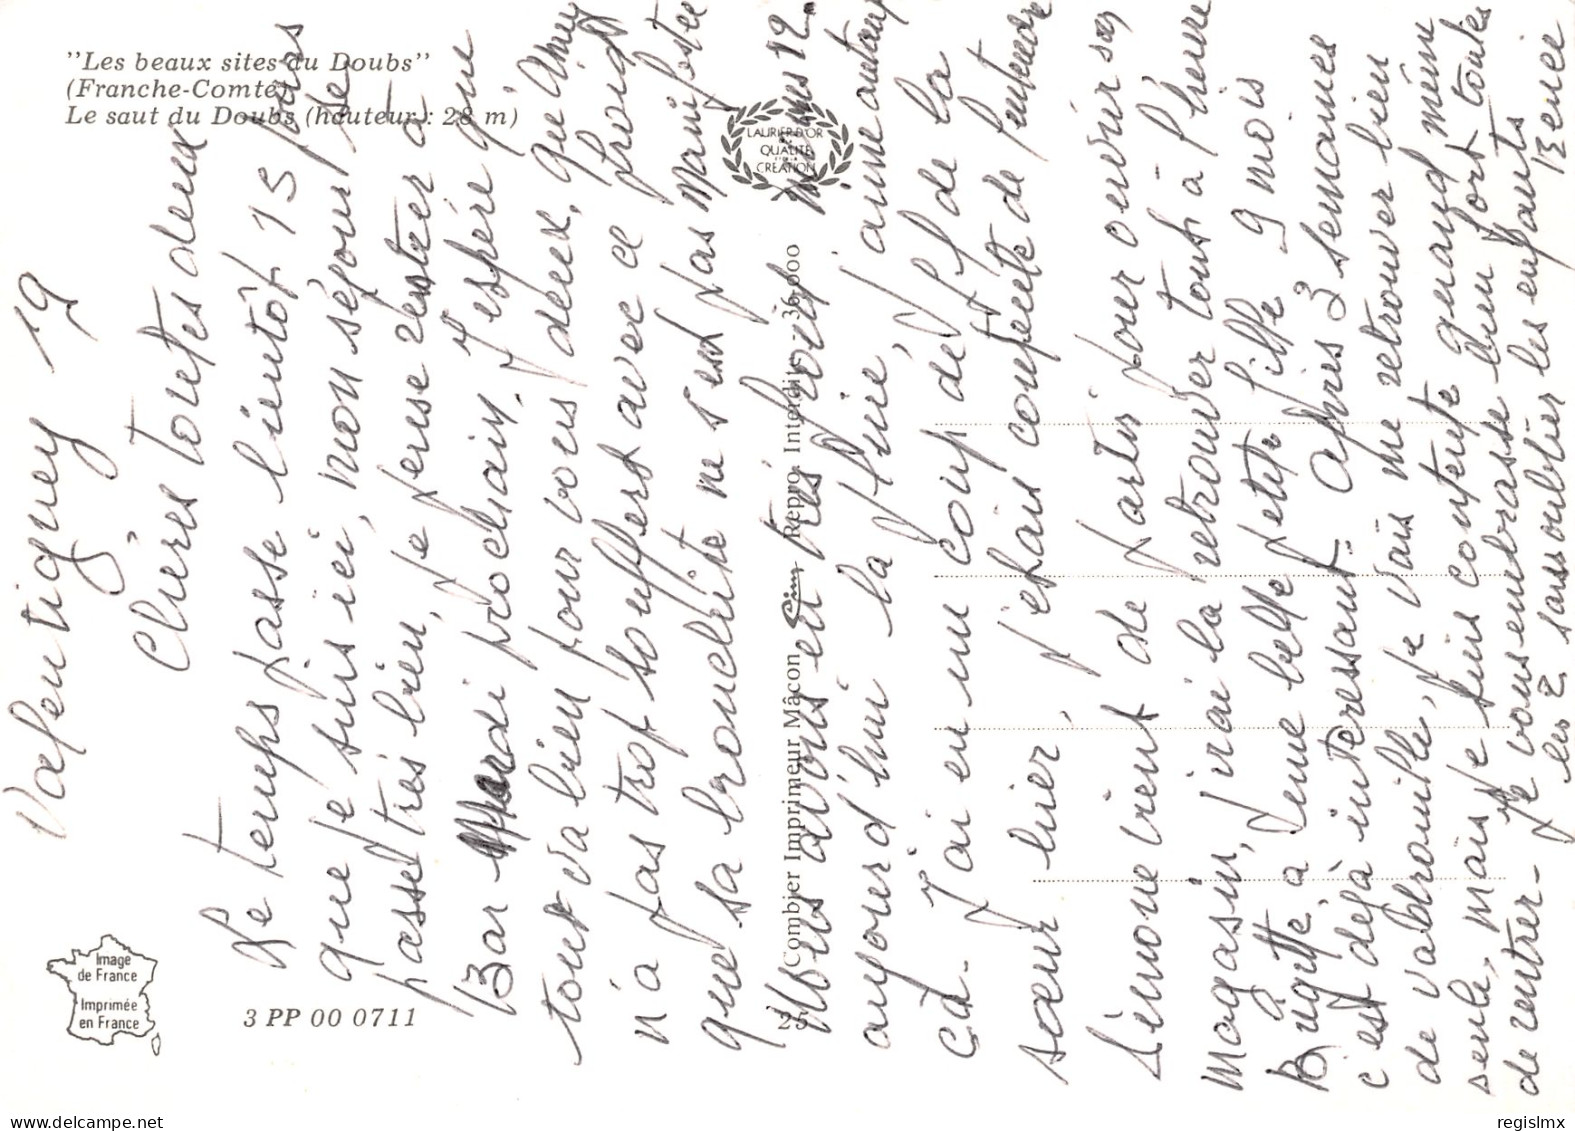 "Les beaux sites du Doubs"
(Franche-Comté)
Le saut du Doubs (hauteur : 28 m)
LAURIER D'OR
DE LA
QUALITÉ
ET DE LA
CRÉATION
Image
de France
Imprimée
en France
3 PP 00 0711
25
Combier Imprimeur Mâcon Cim Repro. Interdite - 36.000
Valentigney 19
Chères toutes deux
Le temps passe bientôt 15 jours
que je suis ici, mon séjour se
passe très bien, je pense rentrer à
Bar Mardi prochain. J'espère que
tout va bien pour vous deux, que
n'a pas trop souffert avec ce froid
que sa bronchite ne s'est pas manifestée
Nous avons eu très froid moins 12.
aujourd'hui la pluie, j'aime autant
ça - J'ai eu un coup de fil de la
sœur hier, j'étais contente de l'entendre
Simone vient de partir pour ouvrir son
magasin, j'irai la retrouver tout à l'heure
a une belle petite fille 9 mois
c'est déjà intéressant. Après 3 semaines
de vadrouille, je vais me retrouver bien
seule, mais je suis contente quand même
de rentrer - je vous embrasse bien fort toutes
les 2 sans oublier les enfants